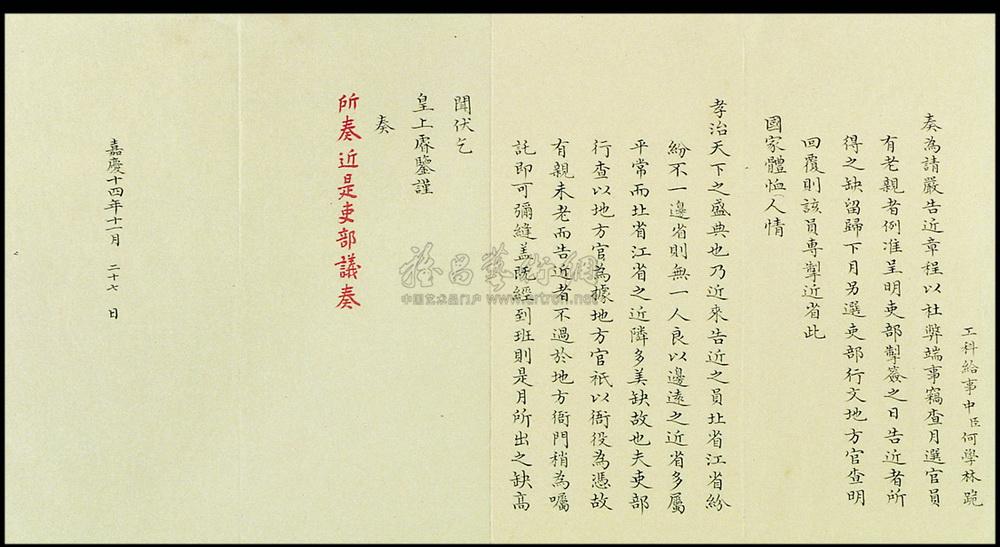 工科給事中臣何學林跪
奏為請嚴告近章程以杜弊端事竊查月選官員
有老親者例准呈明吏部掣簽之日告近者所
得之缺留歸下月另選吏部行文地方官查明
回覆則該員專掣近省此
國家體恤人情
孝治天下之盛典也乃近來告近之員北省江省紛
紛不一邊省則無一人良以邊遠之近省多屬
平常而北省江省之近隣多美缺故也夫吏部
行查以地方官為據地方官祇以衙役為憑故
有親未老而告近者不過於地方衙門稍為囑
託即可彌縫盖既經到班則是月所出之缺高
聞伏乞
皇上睿鑒謹
奏
所奏近是吏部議奏
嘉慶十四年十一月 二十七 日
雅昌藝術網
中国艺术品门户 www.artron.net